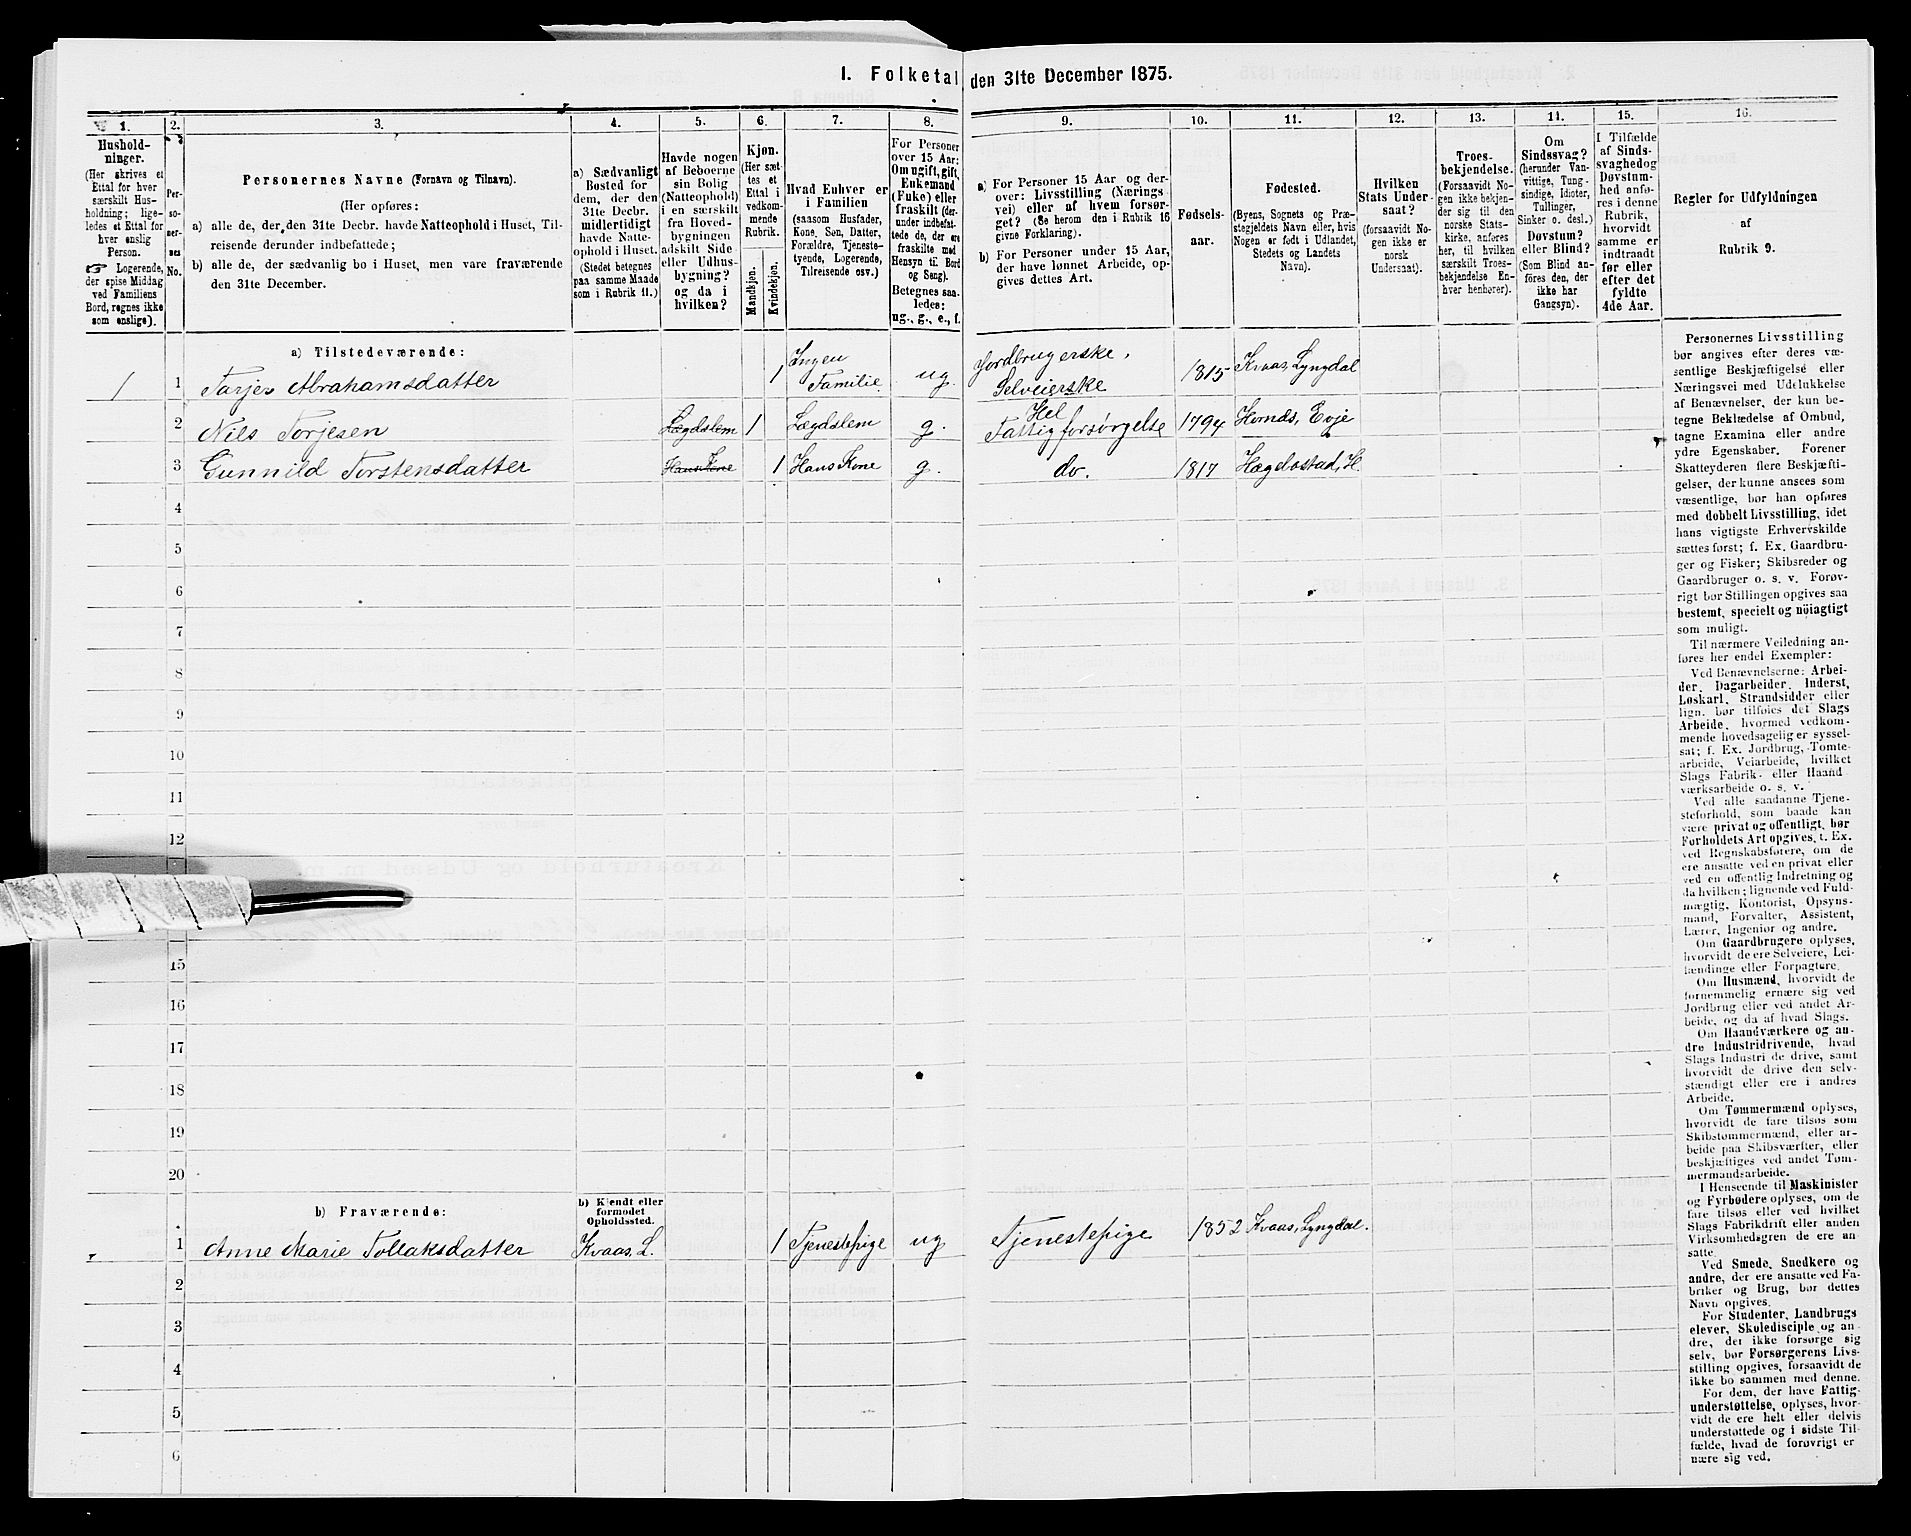 I. Folketal den 31te December 1875.
1.
2.
3.
4.
5.
6.
7.
8.
9.
10.
11.
12.
13.
14.
15.
16.
Hushold-
ninger.
(Her skrives et
Ettal for hver
særskilt Hus-
holdning; lige-
ledes et Ettal for
hver enslig
Person.
☞ Logerende,
der spise Middag
ved Familiens
Bord, regnes ikke
som enslige).
Per-
so-
ner-
nes
No.
Personernes Navne (Fornavn og Tilnavn).
(Her opføres:
a) alle de, der den 31te Decbr. havde Natteophold i Huset, Til-
reisende derunder indbefattede;
b) alle de, der sædvanlig bo i Huset, men vare fraværende
den 31te December.
a) Sædvanligt
Bosted for
dem, der den
31te Decbr.
midlertidigt
havde Natte-
ophold i Huset.
(Stedet betegnes
paa samme Maade
som i Rubrik 11.)
Havde nogen
af Beboerne
sin Bolig
(Natteophold)
i en særskilt
fra Hoved-
bygningen
adskilt Side
eller Udhus-
bygning?
og da i
hvilken?
Kjøn.
(Her sæt-
tes et
Ettal i
vedkom-
mende
Rubrik.
Mandkjøn.
Kvindekjøn.
Hvad Enhver er
i Familien
(saasom Husfader,
Kone, Søn, Datter,
Forældre, Tjeneste-
tyende, Logerende,
Tilreisende osv.)
For Personer
over 15 Aar:
Om ugift, gift,
Enkemand
(Enke) eller
fraskilt (der-
under indbefat-
tede de, der ere
fraskilte med
Hensyn til Bord
og Seng).
Betegnes saa-
ledes:
ug., g., e., f.
a) For Personer 15 Aar og der-
over: Livsstilling (Nærings-
vei) eller af hvem forsør-
get? (Se herom den i Rubrik 16
givne Forklaring).
b) For Personer under 15 Aar,
der have lønnet Arbeide, op-
gives dettes Art.
Fødsels-
aar.
Fødested.
(Byens, Sognets og Præ-
stegjeldets Navn eller, hvis
Nogen er født i Udlandet,
Stedets og Landets
Navn).
Hvilken
Stats Under-
saat?
(forsaavidt No-
gen ikke er
norsk
Undersaat).
Troes-
bekjendelse.
(Forsaavidt No-
gen ikke bekjen-
der sig til den
norske Stats-
kirke, anføres
her, til hvilken
særskilt Troes-
bekjendelse En-
hver henhører).
Om
Sindssvag?
(herunder Van-
vittige, Tung-
sindige, Idioter,
Tullinger,
Sinker o. desl.)
Døvstum?
eller Blind?
(Som Blind an-
føres den, der
ikke har
Gangsyn).
I Tilfælde
af Sinds-
svaghed og
Døvstum-
hed anfø-
res i denne
Rubrik,
hvorvidt
samme er
indtraadt
før eller
efter det
fyldte
4de Aar.
Regler for Udfyldningen
af
Rubrik 9.
a) Tilstedeværende:
1 1 Tarjer Abrahamsdatter 1 Ingen Familie ug. Jordbrugerske, Selveierske 1815 Kvaas, Lyngdal
2 Nils Torjesen Lægdslem 1 Lægdslem g. Hel Fattigforsørgelse 1794 Hornds, Evje
3 Gunnild Torstensdatter Hans Kone 1 Hans Kone g. do. 1817 Hægebostad, H.
4
5
6
7
8
9
10
11
12
15
16
17
18
19
20
b) Fraværende:
b) Kjendt eller
formodet
Opholdssted.
1 Anne Marie Tollaksdatter Kvaas, L. 1 Tjenestepige ug Tjenestepige 1852 Kvaas, Lyngdal.
2
3
4
5
6
Personernes Livsstilling
bør angives efter deres væ-
sentlige Beskjæftigelse eller
Næringsvei med Udelukkelse
af Benævnelser, der kun be-
tegne Beklædelse af Ombud,
tagne Examina eller andre
ydre Egenskaber. Forener
Skatteyderen flere Beskjæfti-
gelser, der kunne ansees som
væsentlige, bør han opføres
med dobbelt Livsstilling, idet
hans vigtigste Erhvervskilde
sættes først; f. Ex. Gaardbru-
ger og Fisker; Skibsreder og
Gaardbruger o. s. v. Forøv-
rigt bør Stillingen opgives saa
bestemt, specielt og nøiagtigt
som muligt.
Til nærmere Veiledning an-
føres her endel Exempler:
Ved Benævnelserne: Arbei-
der, Dagarbeider, Inderst,
Løskarl, Strandsidder eller
lign. bør tilføies det Slags
Arbeide, hvormed vedkom-
mende hovedsagelig er syssel-
sat; f. Ex. Jordbrug, Tomte-
arbeide, Veiarbeide, hvilket
Slags Fabrik- eller Haand-
værksarbeide o. s. v.
Ved alle saadanne Tjene-
steforhold, som baade kan
være privat og offentligt, bør
Forholdets Art opgives, t. Ex.
ved Regnskabsførere, om de
ere ansatte ved en privat eller
ved en offentlig Indretning og
da hvilken; lignende ved Fuld-
mægtig, Kontorist, Opsyns-
mand, Forvalter, Assistent,
Lærer, Ingeniør og andre.
Om Gaardbrugere oplyses,
hvorvidt de ere Selveiere, Lei-
lændinge eller Forpagtere.
Om Husmænd, hvorvidt de
fornemmelig ernære sig ved
Jordbrug eller ved andet Ar-
beide, og da af hvad Slags.
Om Haandværkere og an-
dre Industridrivende, hvad
Slags Industri de drive, samt
hvorvidt de drive den selv-
stændigt eller ere i andres
Arbeide.
Om Tømmermænd oplyses,
hvorvidt de fare tilsøs som
Skibstømmermænd, eller ar-
beide paa Skibsværfter, eller
beskjæftiges ved andet Tøm-
mermandsarbeide.
I Henseende til Maskinister
og Fyrbødere oplyses, om de
fare tilsøs eller ved hvilket
Slags Fabrikdrift eller anden
Virksomhedsgren de ere an-
satte.
Ved Smede, Snedkere og
andre, der ere ansatte ved Fa-
briker og Brug, bør dettes
Navn opgives.
For Studenter, Landbrugs-
elever, Skoledisciple og an-
dre, det ikke forsørge sig
selv, bør Forsørgerens Livs-
stilling opgives, forsaavidt de
ikke bo sammen med denne.
For dem, der have Fattig-
understøttelse, oplyses, hvor-
vidt de ere helt eller delvis
understøttede og i sidste Til-
fælde, hvad de forøvrigt er
nære sig ved.